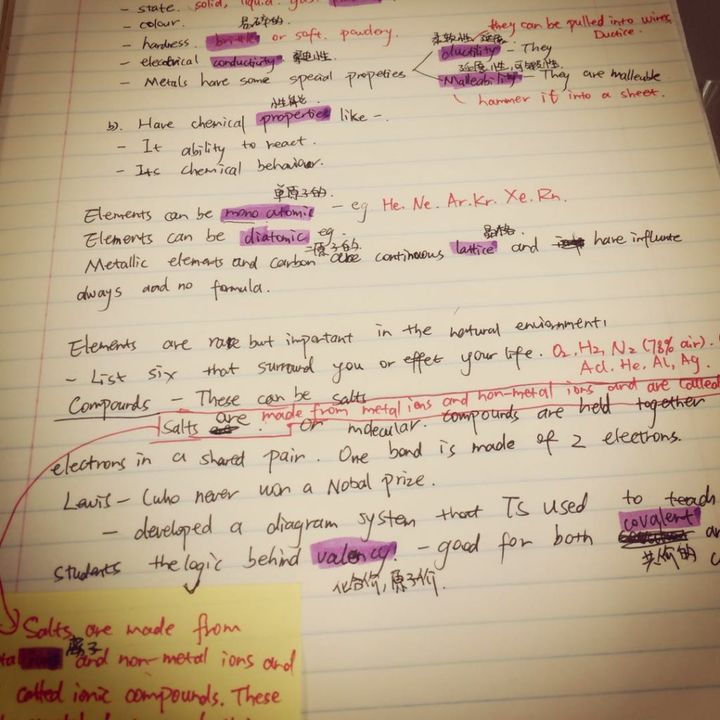 - state. solid, liquid. gas.
易碎的
- colour.
- hardness. brittle or soft. powdery.
- electrical conductivity.
they can be pulled into wires
Ductice.
ductility - They
- Metals have some special propeties
Malleability - They are malleable
hammer it into a sheet.
b). Have chemical properties like -.
- It ability to react.
- Its chemical behaviour.
单原子的.
Elements can be mono atomic - eg He. Ne. Ar. Kr. Xe. Rn.
Elements can be diatomic eg.
二原子的
晶格.
Metallic elements and carbon are continuous lattice and have influnte
always and no formula.
Elements are rare but important in the natural enviornment,
- List six that surround you or effet your life. O2, H2, N2 (78% air).
Acl. He, Al, Ag.
Compounds - These can be salts
Salts are made from metal ions and non-metal ions and are called
or molecular. compounds are held together
electrons in a shared pair. One bond is made of 2 electrons.
Lewis - (who never won a Nobal prize.
- developed a diagram system that Is used to teach
students the logic behind valency. - good for both covalent
化合价, 原子价.
共价的
Salts are made from
and non-metal ions and
called ionic compounds. These